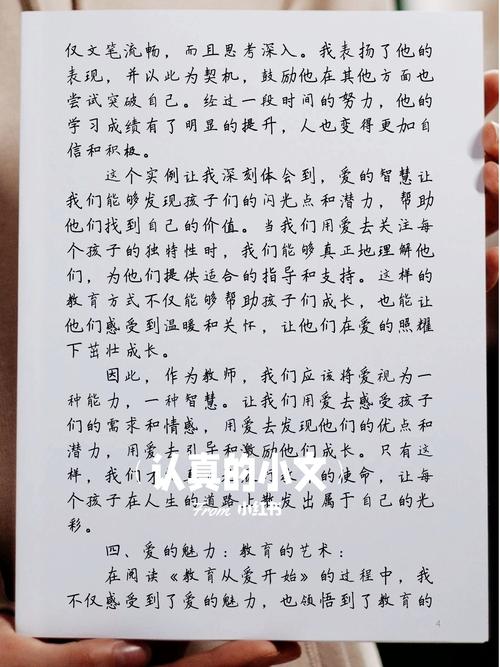 仅文笔流畅，而且思考深入。我表扬了他的
表现，并以此为契机，鼓励他在其他方面也
尝试突破自己。经过一段时间的努力，他的
学习成绩有了明显的提升，人也变得更加自
信和积极。
这个实例让我深刻体会到，爱的智慧让
我们能够发现孩子们的闪光点和潜力，帮助
他们找到自己的价值。当我们用爱去关注每
个孩子的独特性时，我们能够真正地理解他
们，为他们提供适合的指导和支持。这样的
教育方式不仅能够帮助孩子们成长，也能让
他们感受到温暖和关怀，让他们在爱的照耀
下茁壮成长。
因此，作为教师，我们应该将爱视为一
种能力，一种智慧。让我们用爱去感受孩子
们的需求和情感，用爱去发现他们的优点和
潜力，用爱去引导和激励他们成长。只有这
样，我们才的使命，让每
个孩子在人生的道路上散发出属于自己的光
彩。
（认真的小文）
From 小红书
四、爱的魅力：教育的艺术：
在阅读《教育从爱开始》的过程中，我
不仅感受到了爱的魅力，也领悟到了教育的
4